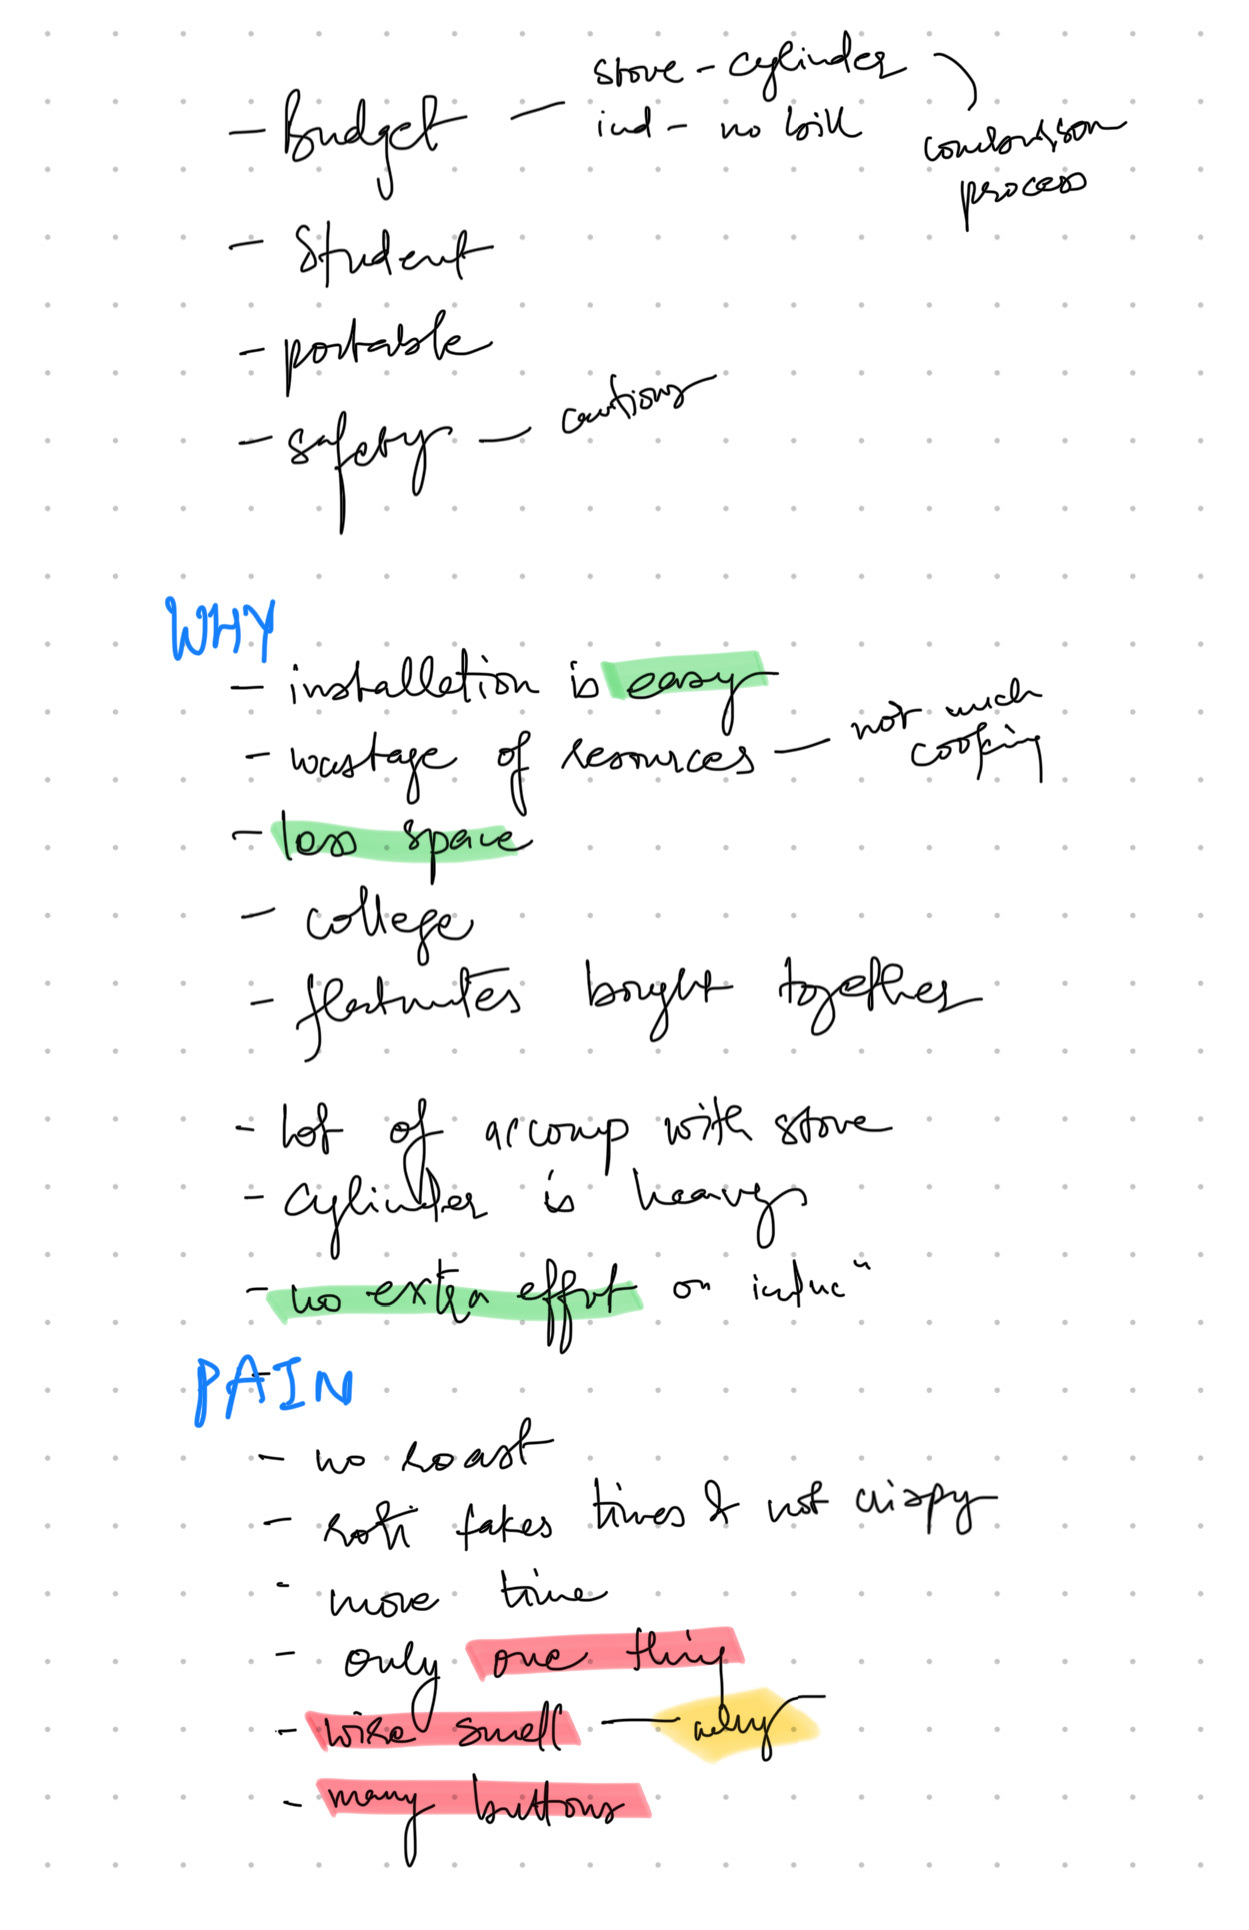 stove - cylinder
- Budget — ind - no bill
process
- Student
- portable
- safety — cautions
WHY
- installation is easy
- wastage of resources — not much
cooking
- less space
- college
- flatmates bought together
- lot of accomp with stove
- cylinder is heavy
- no extra effort on induc"
PAIN
- no roast
- roti takes times & not crispy
- more time
- only one thing
- wire smell —
- many buttons